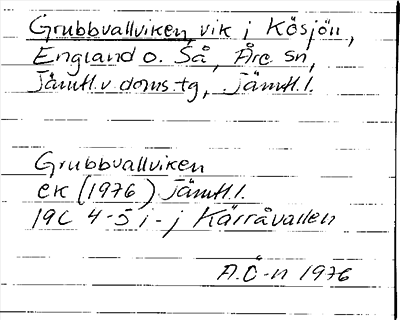 Grubbvallviken, vik i Kösjön,
England o. Så, Åre sn,
Jämtl. v. doms.tg, Jämtl. l.
Grubbvallviken
ek (1976) Jämtl. l.
19C 4-5 i-j Kårråvallen
A.Ö-n 1976